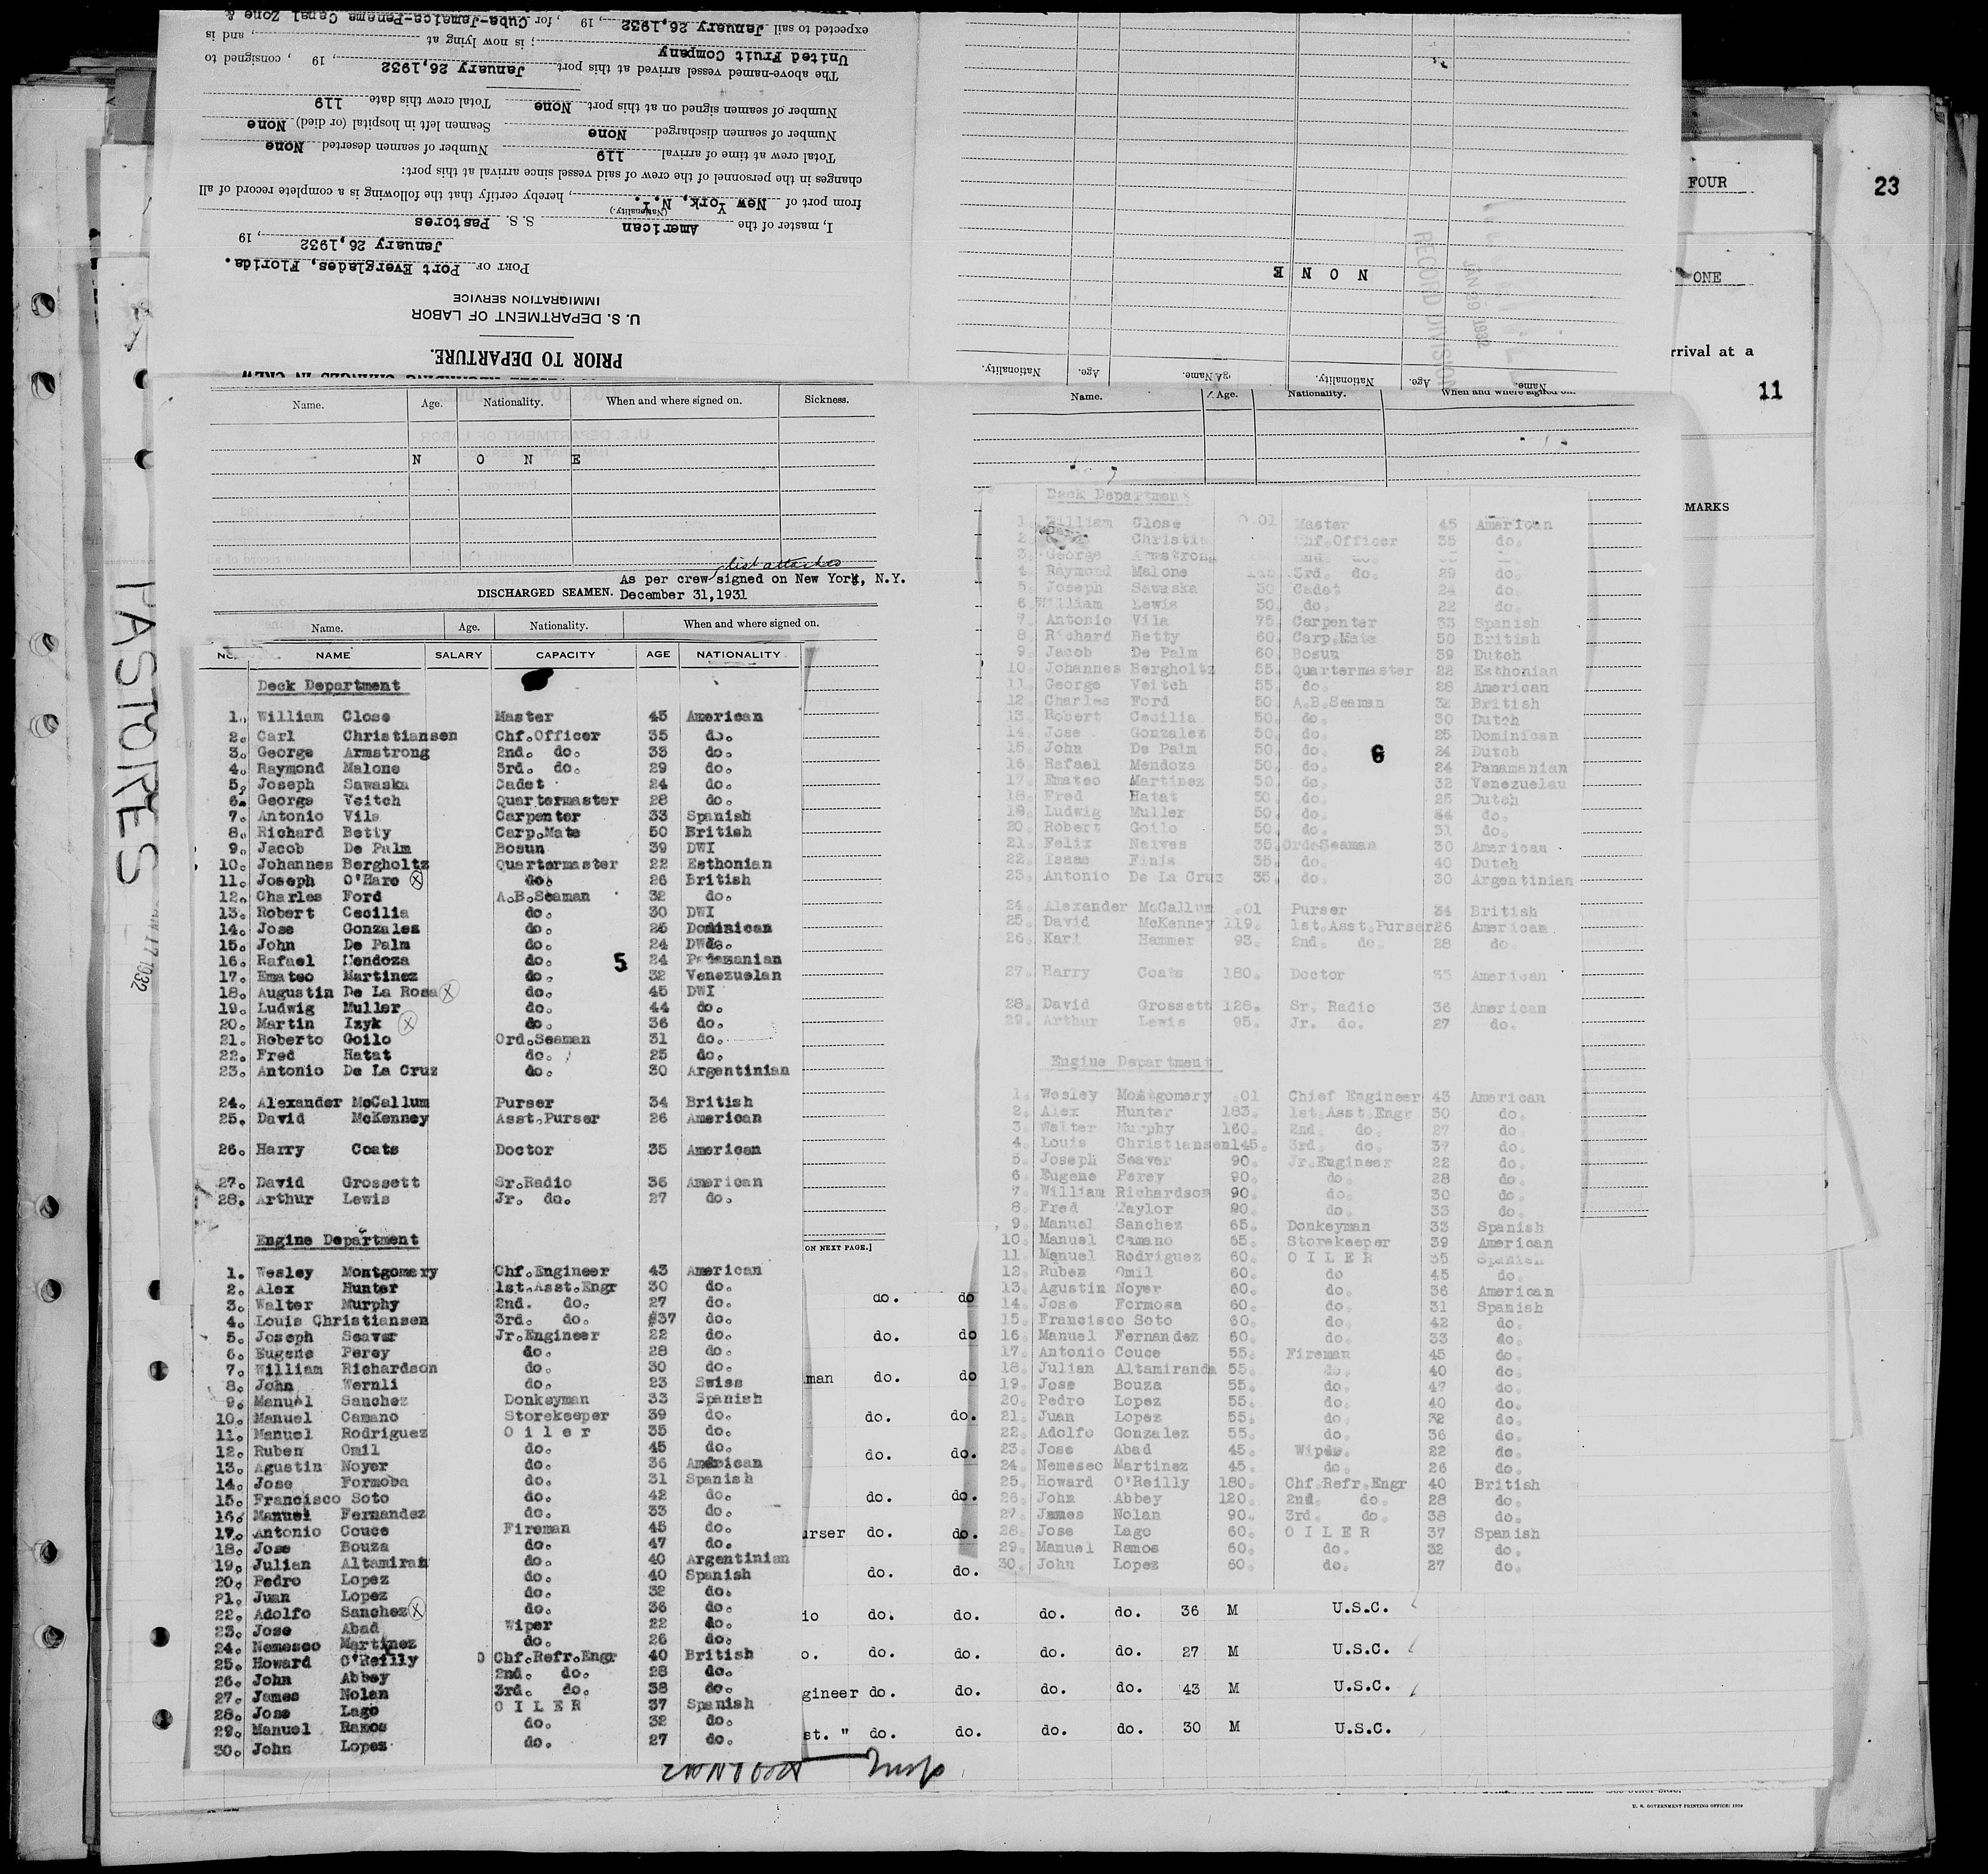 PRIOR TO DEPARTURE.
U. S. DEPARTMENT OF LABOR
IMMIGRATION SERVICE
PORT OF Port Everglades, Florida.
January 26,1932, 19
I, master of the American S. S. Pastores
(Nationality.)
from port of New York, N.Y., hereby certify that the following is a complete record of all
changes in the personnel of the crew of said vessel since arrival at this port:
Total crew at time of arrival 119 Number of seamen deserted None
Number of seamen discharged None Seamen left in hospital (or died) None
Number of seamen signed on at this port None Total crew this date 119
The above-named vessel arrived at this port January 26,1932, 19 , consigned to
United Fruit Company ; is now lying at , and is
expected to sail January 26,1932, 19 , for Cuba-Jamaica-Panama Canal Zone &
Name. Age. Nationality. Name. Age. Nationality.
N O N E
JAN 29 1932
RECORD DIVISION
FOUR
23
ONE
rrival at a
11
MARKS
PASTORES
JAN 17 1932
Name. Age. Nationality. When and where signed on. Sickness.
N O N E
list attached
As per crew signed on New York, N.Y.
DISCHARGED SEAMEN. December 31,1931
Name. Age. Nationality. When and where signed on.
NO. NAME SALARY CAPACITY AGE NATIONALITY
Deck Department
1. William Close Master 45 American
2. Carl Christiansen Chf.Officer 35 do.
3. George Armstrong 2nd. do. 33 do.
4. Raymond Malone 3rd. do. 29 do.
5. Joseph Sawaska Cadet 24 do.
6. George Veitch Quartermaster 28 do.
7. Antonio Vila Carpenter 33 Spanish
8. Richard Betty Carp.Mate 50 British
9. Jacob De Palm Bosun 39 DWI
10. Johannes Bergholtz Quartermaster 22 Esthonian
11. Joseph O'Hare X do. 26 British
12. Charles Ford A.B.Seaman 32 do.
13. Robert Cecilia do. 30 DWI
14. Jose Gonzales do. 25 Dominican
15. John De Palm do. 24
16. Rafael Mendoza do. 5 24 Panamanian
17. Emateo Martinez do. 32 Venezuelan
18. Augustin De La Rosa X do. 45 DWI
19. Ludwig Muller do. 44 do.
20. Martin Izyk X do. 36 do.
21. Roberto Goilo Ord.Seaman 31 do.
22. Fred Hatat do. 25 do.
23. Antonio De La Cruz do. 30 Argentinian
24. Alexander McCallum Purser 34 British
25. David McKenney Asst.Purser 26 American
26. Harry Coats Doctor 35 American
27. David Grossett Sr.Radio 36 American
28. Arthur Lewis Jr. do. 27 do.
Engine Department
1. Wesley Montgomery Chf.Engineer 43 American
2. Alex Hunter 1st.Asst.Engr 30 do.
3. Walter Murphy 2nd. do. 27 do.
4. Louis Christiansen 3rd. do. 37 do.
5. Joseph Seaver Jr.Engineer 22 do.
6. Eugene Perey do. 28 do.
7. William Richardson do. 30 do.
8. John Wernli do. 23 Swiss
9. Manuel Sanchez Donkeyman 33 Spanish
10. Manuel Camano Storekeeper 39 do.
11. Manuel Rodriguez O i l e r 35 do.
12. Ruben Omil do. 45 do.
13. Agustin Noyer do. 36 American
14. Jose Formoba do. 31 Spanish
15. Francisco Soto do. 42 do.
16. Manuel Fernandez do. 33 do.
17. Antonio Couce Fireman 45 do.
18. Jose Bouza do. 47 do.
19. Julian Altamiran do. 40 Argentinian
20. Pedro Lopez do. 40 Spanish
21. Juan Lopez do. 32 do.
22. Adolfo Sanchez X do. 36 do.
23. Jose Abad Wiper 22 do.
24. Nemeseo Martinez do. 26 do.
25. Howard O'Reilly Chf.Refr.Engr 40 British
26. John Abbey 2nd. do. 28 do.
27. James Nolan 3rd. do. 38 do.
28. Jose Lago O I L E R 37 Spanish
29. Manuel Ramos do. 32 do.
30. John Lopez do. 27 do.
Name. Age. Nationality. When and where signed on.
Deck Department
1. William Close .01 Master 45 American
2. Christia Chf.Officer 35 do.
3. George Armstrong 2nd. do.
4. Raymond Malone 3rd. do. 29 do.
5. Joseph Sawaska 50 Cadet 24 do.
6. William Lewis 50. do. 22 do.
7. Antonio Vila 75 Carpenter 33 Spanish
8. Richard Betty 60. Carp.Mate 50 British
9. Jacob De Palm 60. Bosun 39 Dutch
10. Johannes Bergholtz 55. Quartermaster 22 Esthonian
11. George Veitch 55. do. 28 American
12. Charles Ford 50. A.B.Seaman 32 British
13. Robert Cecilia 50. do. 30 Dutch
14. Jose Gonzalez 50. do. 25 Dominican
15. John De Palm 50. do. 6 24 Dutch
16. Rafael Mendoza 50. do. 24 Panamanian
17. Emateo Martinez 50. do. 32 Venezuelau
18. Fred Hatat 50. do. 25 Dutch
19. Ludwig Muller 50. do. 44 do.
20. Robert Goilo 50. do. 31 do.
21. Felix Neives 35. Ord.Seaman 30 American
22. Isaac Finis 35. do. 40 Dutch
23. Antonio De La Cruz 35. do. 30 Argentinian
24. Alexander McCallum .01 Purser 34 British
25. David McKenney 119. 1st.Asst.Purser 26 American
26. Karl Hammer 93. 2nd. do. 28 do.
27. Harry Coats 180. Doctor 35 American
28. David Grossett 128. Sr. Radio 36 American
29. Arthur Lewis 95. Jr. do. 27 do.
Engine Department
1. Wesley Montgomery .01 Chief Engineer 43 American
2. Alex Hunter 183. 1st.Asst.Engr 30 do.
3. Walter Murphy 160. 2nd. do. 27 do.
4. Louis Christiansen 145. 3rd. do. 37 do.
5. Joseph Seaver 90. Jr.Engineer 22 do.
6. Eugene Perey 90. do. 28 do.
7. William Richardson 90. do. 30 do.
8. Fred Taylor 90. do. 33 do.
9. Manuel Sanchez 65. Donkeyman 33 Spanish
10. Manuel Camano 65. Storekeeper 39 American
11. Manuel Rodriguez 60. O I L E R 35 Spanish
12. Ruben Omil 60. do 45 do.
13. Agustin Noyer 60. do. 36 American
14. Jose Formosa 60. do. 31 Spanish
15. Francisco Soto 60. do. 42 do.
16. Manuel Fernandez 60. do. 33 do.
17. Antonio Couce 55. Fireman 45 do.
18. Julian Altamiranda 55. do. 40 do.
19. Jose Bouza 55. do. 47 do.
20. Pedro Lopez 55. do. 40 do.
21. Juan Lopez 55. do. 32 do.
22. Adolfo Gonzalez 55. do. 36 do.
23. Jose Abad 45. Wiper. 22 do.
24. Nemeseo Martinez 45. do. 26 do.
25. Howard O'Reilly 180. Chf.Refr.Engr 40 British
26. John Abbey 120. 2nd. do. 28 do.
27. James Nolan 90. 3rd. do. 38 do.
28. Jose Lago 60. O I L E R 37 Spanish
29. Manuel Ramos 60. do. 32 do.
30. John Lopez 60. do. 27 do.
ON NEXT PAGE.]
do. do
do. do
man do. do
do. do.
do. do.
do. do.
urser do. do.
do. do.
io do. do. do. do. 36 M U.S.C.
o. do. do. do. do. 27 M U.S.C.
gineer do. do. do. do. 43 M U.S.C.
st. " do. do. do. do. 30 M U.S.C.
U. S. GOVERNMENT PRINTING OFFICE: 1930